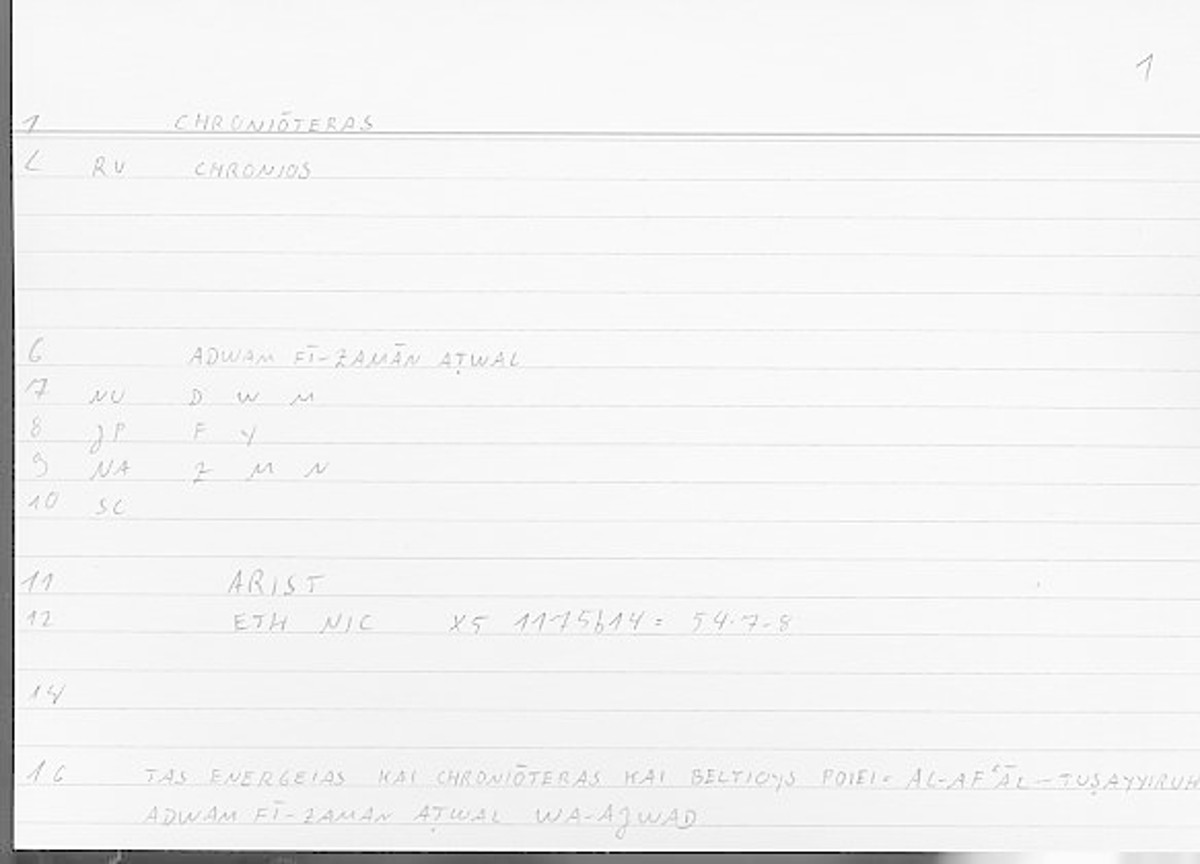 1
1 CHRONIŌTERAS
2 RU CHRONIOS
6 ADWAM FĪ-ZAMĀN AṬWAL
7 NU D W M
8 JP F Y
9 NA Z M N
10 SC
11 ARIST
12 ETH NIC X5 1175b14 = 54.7-8
14
16 TAS ENERGEIAS KAI CHRONIŌTERAS KAI BELTIOYS POIEI = AL-AFʿĀL-TUṢAYYIRUH
ADWAM FĪ-ZAMAN AṬWAL WA-AJWAD